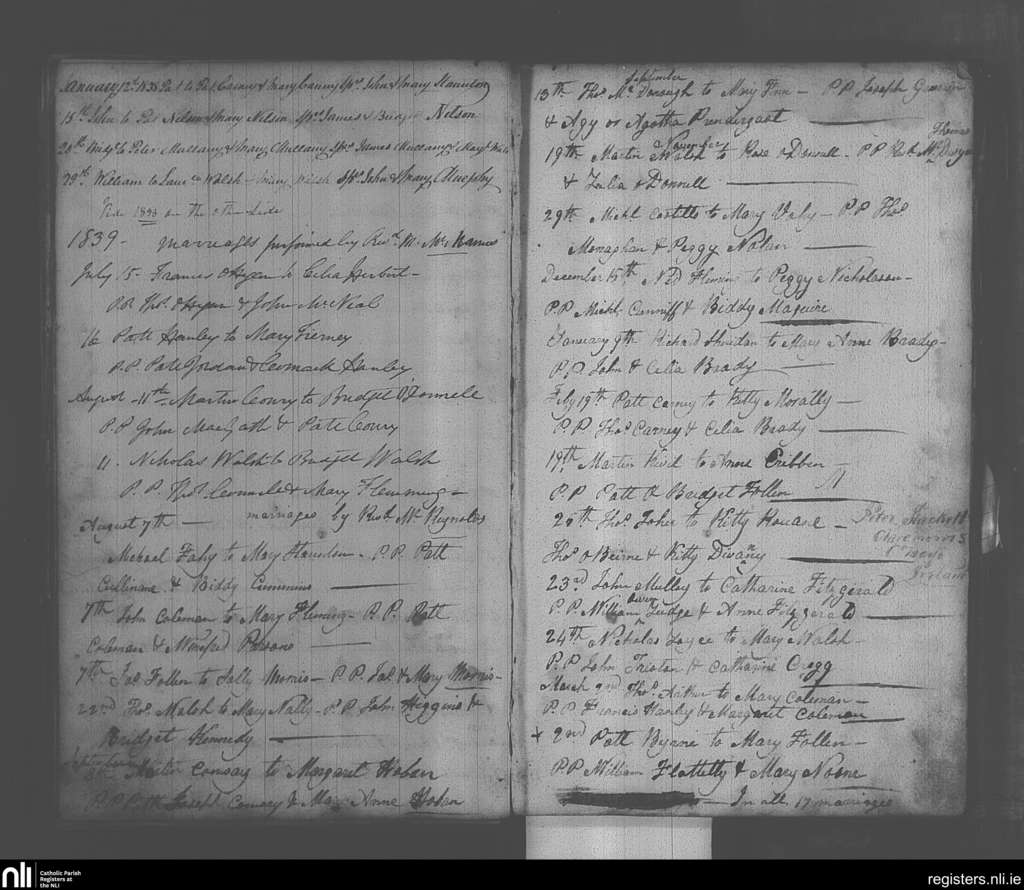 January 12th 1838 Pat to Pat Carney & Mary Canny Sprs John & Mary Staunton
15th John to Pat Nelson & Mary Nelson Sprs James & Bridget Nelson
20th Bridgt to Peter Mullany & Mary Mullany Sprs James Mullany & Margt
29th William to Laurce Walsh & Mary Walsh Sprs John & Mary Murphy
Vide 1838 on the other side
1839 - marriages performed by Revd M. Mc Namee
July 15 - Frances to Celia Herbert -
P.P. Thos & John McNeal
16 Patt Hanley to Mary Tierney
P.P. Patt Jordan & Cormack Hanley
August - 11th - Martin Conry to Bridget O'Donnell
P.P. John MacGath & Patt Conry
11. Nicholas Walsh to Bridget Walsh
P.P. Thos & Mary Flemming -
August 7th - marriages by Revd Mr Reynolds
Michael Fahy to Mary - P.P. Patt
Cullinane & Biddy Cummins
7th John Coleman to Mary Fleming - P.P. Patt
Coleman & Winifred Parsons
7th Jas Follen to Sally Morris - P.P. Jas & Mary Morris -
22nd Thos Walsh to Mary Nally - P.P. John Higgins &
Bridget Kennedy
September
8th Martin Conway to Margaret Hoban
P.P. Joseph Conway & Mary Anne Hoban
September
13th Thos Mc Donough to Mary Finn - P.P. Joseph
& Agy or Agatha Prendergast
November Thomas
19th Martin Walsh to Rose O'Donnell - P.P.
& Julia O'Donnell
29th Michl Costello to Mary Daly - P.P. Thos
Monaghan & Peggy Nolan
December 15th Ned Fleming to Peggy Nicholson -
P.P. Michl Cunniff & Biddy Maguire
January 9th Richard Sheridan to Mary Anne Brady -
P.P. John & Celia Brady
Feby 19th Patt Carney to Kitty Morally -
P.P. Thos Carney & Celia Brady
19th Martin to Anne Cribben -
P.P. Patt & Bridget Follen
20th Thos to Kitty Rouane -
Peter Hackett
Claremorris
Co Mayo
Ireland
Thos O Beirne & Kitty Divany
23rd John Mulley to Catharine Fitzgerald
P.P. William Judge & Anne Fitzgerald
24th Nicholas Joyce to Mary Walsh -
P.P John & Catharine Cregg
March 2nd Thos to Mary Coleman -
P.P. Francis Hanley & Margaret Coleman
+ 2nd Patt Byrne to Mary Follen -
P.P William Flattelly & Mary Noone
In all 17 marriages
nli Catholic Parish
Registers at
the NLI
registers.nli.ie